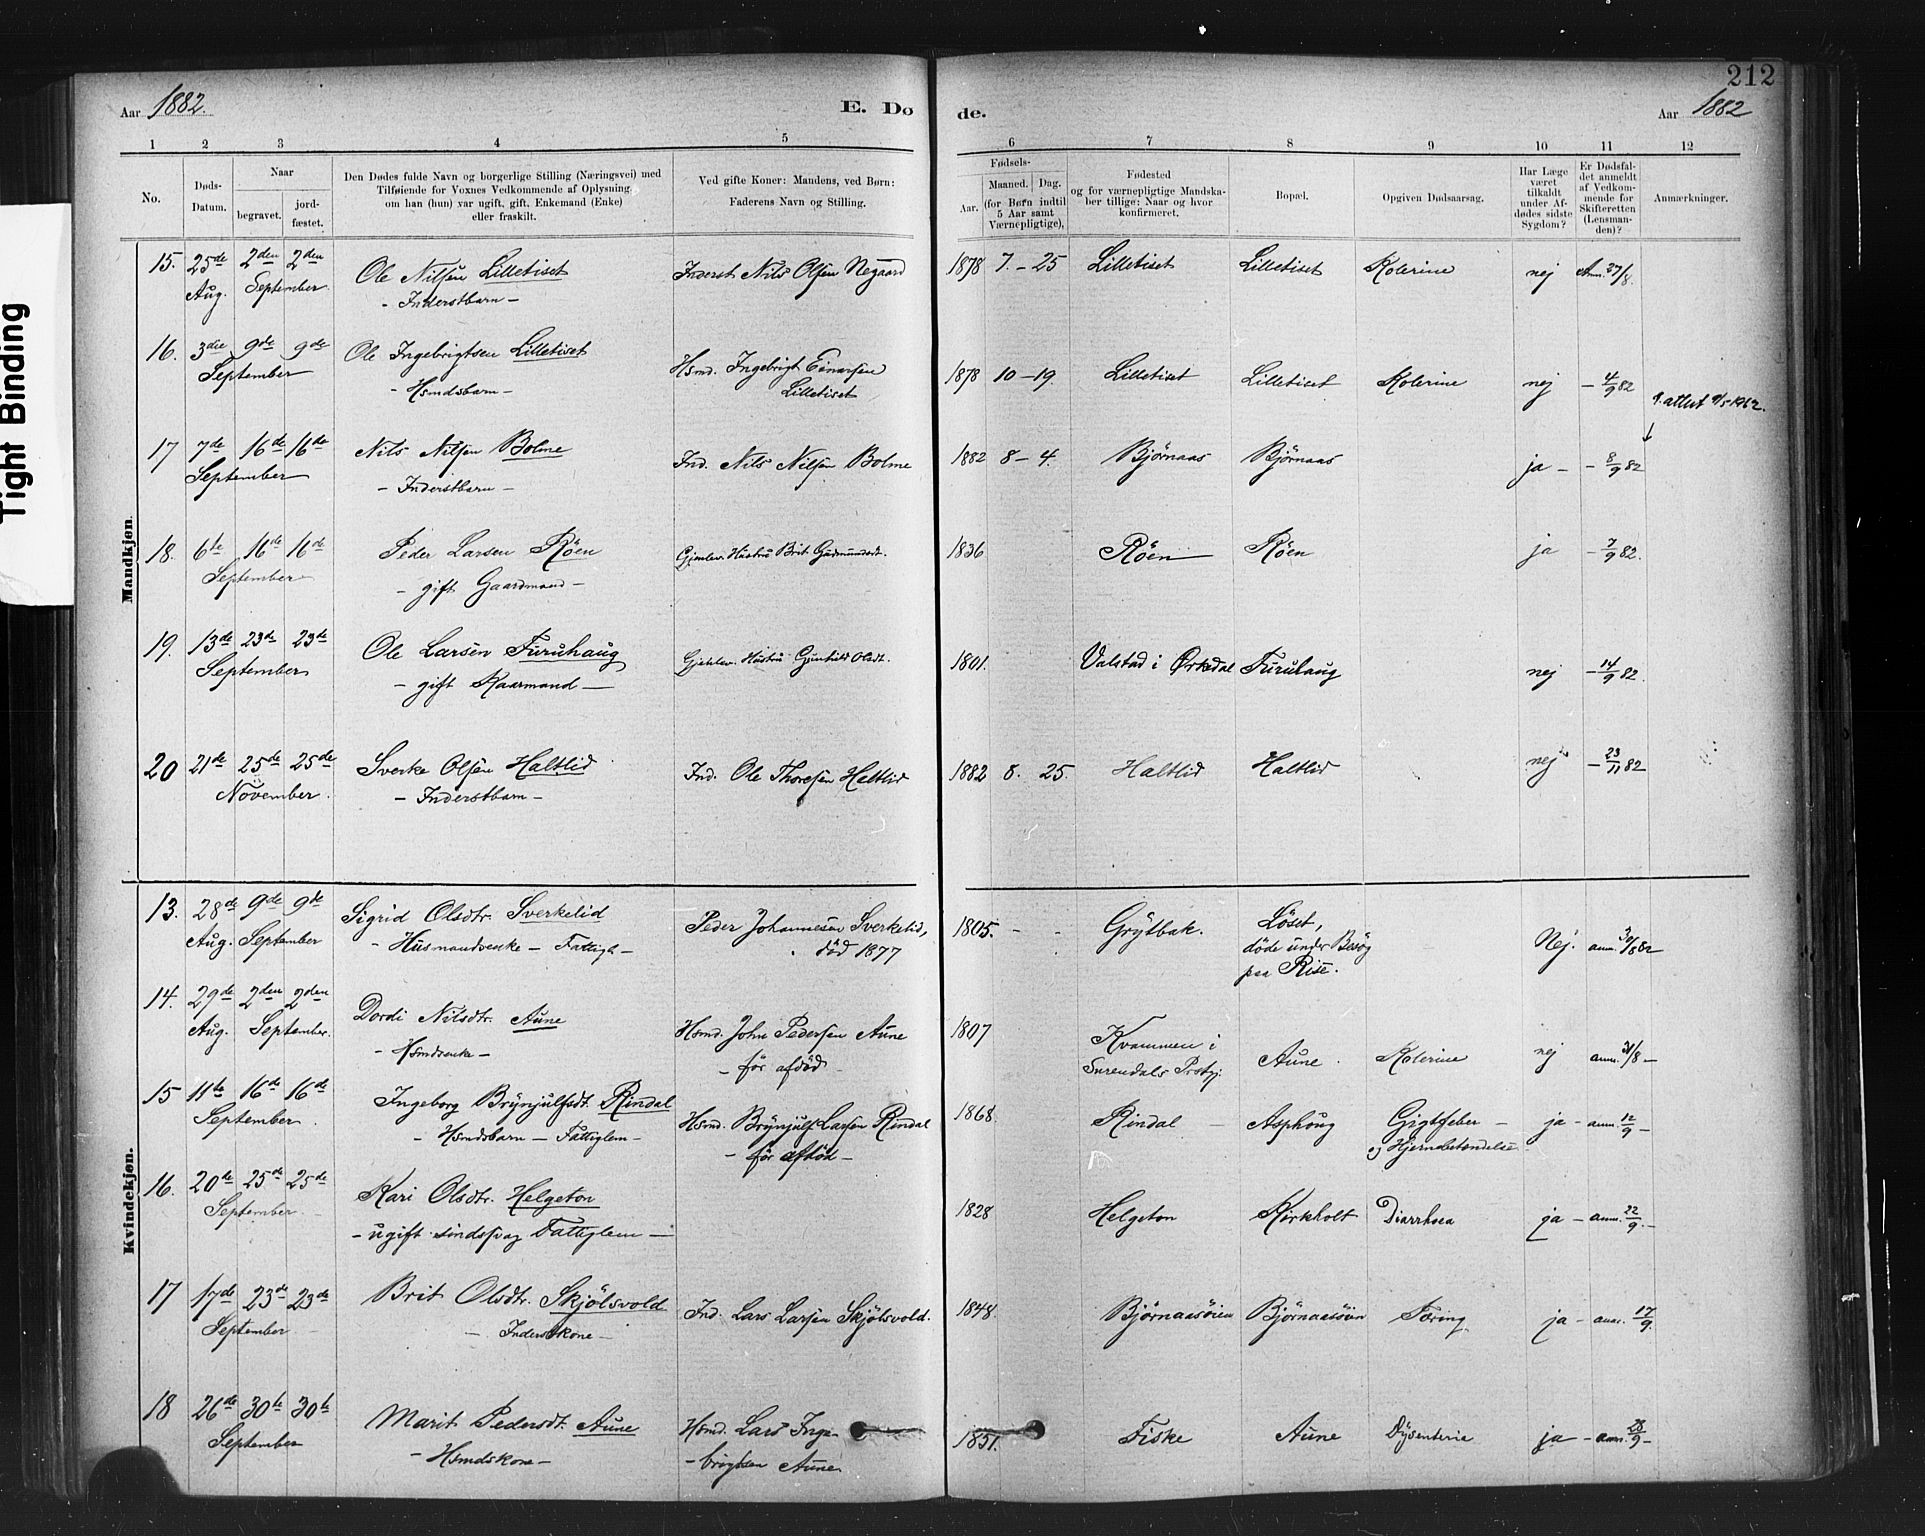 212
Aar 1882. E. Dø de. Aar 1882
1 2 3 4 5 6 7 8 9 10 11 12
No.
Døds-Datum.
Naar
begravet.
jord-fæstet.
Den Dødes fulde Navn og borgerlige Stilling (Næringsvei) med
Tilføiende for Voxnes Vedkommende af Oplysning,
om han (hun) var ugift, gift, Enkemand (Enke)
eller fraskilt.
Ved gifte Koner: Mandens, ved Børn:
Faderens Navn og Stilling.
Fødsels-
Aar. Maaned. Dag.
(for Børn indtil
5 Aar samt
Værnepligtige).
Fødested
og for værnepligtige Mandska-
ber tillige: Naar og hvor
konfirmeret.
Bopæl.
Opgiven Dødsaarsag.
Har Læge
været
tilkaldt
under Af-
dødes sidste
Sygdom?
Er Dødsfal-
det anmeldt
af Vedkom-
mende for
Skifteretten
(Lensman-
den)?
Anmærkninger.
Tight Binding
Mandkjøn.
15. 25de 2den 2den Ole Nilsen Lilletiset Inderst Nils Olsen Negaard 1878 7. - 25 Lilletiset Lilletiset Kolerine nej Anm. 27/8.
Aug. September - Inderstbarn -
16. 3die 9de 9de Ole Ingebrigtsen Lilletiset Hsmd. Ingebrigt Einersen 1878 10 - 19. Lilletiset Lilletiset Kolerine nej - 4/9 82
September - Hsmdsbarn - Lilletiset
attest 9/5 1962.
17 7de 16de 16de Nils Nilsen Bolme Ind. Nils Nilsen Bolme 1882 8 - 4. Bjørnaas Bjørnaas ja - - 8/9 82
September - Inderstbarn -
18. 6te 16de 16de Peder Larsen Röen Gjenlev. Hustru Brit Gudmundsdt. 1836 Röen Röen ja - 7/9 82.
September - gift Gaardmand -
19. 13de 23de 23de Ole Larsen Furuhaug Gjenlev. Hustru Gunhild Olsdt. 1801. Valstad i Ørkedal Furuhaug nej - 14/9 82.
September - gift Kaarmand -
20 21de 25de 25de Sverke Olsen Haltlid Ind. Ole Thoresen Haltlid 1882 8. 25. Haltlid Haltlid nej - 23/11 82
November. - Inderstbarn -
Kvindekjøn.
13. 28de 9de 9de Sigrid Olsdtr. Sverkelid Peder Johannesen Sverkelid, 1805. - - Grÿtbak. Löset, Nej. anm. 30/8 82
Aug. September - Husmandsenke - Fattigl - död 1877 döde under Besög
paa Rise.
14. 29de 2den 2den Dordi Nilsdtr. Aune Hsmd. John Pedersen Aune 1807 Kvammen i Aune. Kolerine nej anm. 31/8 -
Aug. September. - Hsmdsenke - - för afdöd - Surendals Prstgj:
15 11te 16de 16de Ingeborg Brÿnjulfsdt. Rindal Hsmd. Brÿnjulf Larsen Rindal 1868. Rindal - Asphoug Gigtfeber - ja - anm. 12/9 -
September. - Hsmdsbarn - Fattiglem - - för afdöd - og Hjernebetændelse.
16. 20de 25de 25de Kari Olsdtr. Helgeton 1828 Helgeton Kirkholt Diarrhoea ja - anm. 22/9. -
September - ugift sindssvag Fattiglem -
17 17de 23de 23de Brit Olsdtr. Skjölsvold Ind. Lars Larsen Skjölsvold. 1848. Bjørnaasöien Bjørnaasöien Tæring. ja - anm. 17/9.
September - Inderstkone -
18 26de 30te 30te Marit Pedersdt. Aune Hsmd. Lars Inge- 1851. Fiske Aune Dÿsenteria ja - anm. 28/9 -
September - Hsmdskone - - brigtsen Aune.